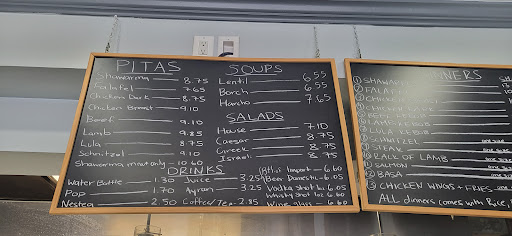 PITAS
Shawarma 8.75
Falafel 7.65
Chicken Dark 8.75
Chicken Breast 9.10
Beef 9.10
Lamb 9.85
Lula 8.75
Schnitzel 9.10
Shawarma meat only 10.60
SOUPS
Lentil 6.55
Borch 6.55
Harcho 7.65
SALADS
House 7.10
Caesar 8.75
Greek 8.75
Israeli 8.75
DRINKS
Water Bottle 1.30
Pop 1.70
Nestea 2.50
Juice 3.25
Ayran 3.25
Coffee/Tea 2.85
Import 6.60
Beer Domestic 6.05
Vodka shot 6.05
Whisky shot 6.60
Wine glass 6.60
NERS
SHAWAR
FALAF
CHICKEN
CHICKEN
LULA KEBOB
SCHNITZEL
STEAK
RACK OF LAMB
SALMON
BASA
CHICKEN WINGS + FRIES
ALL dinners comes with Rice,